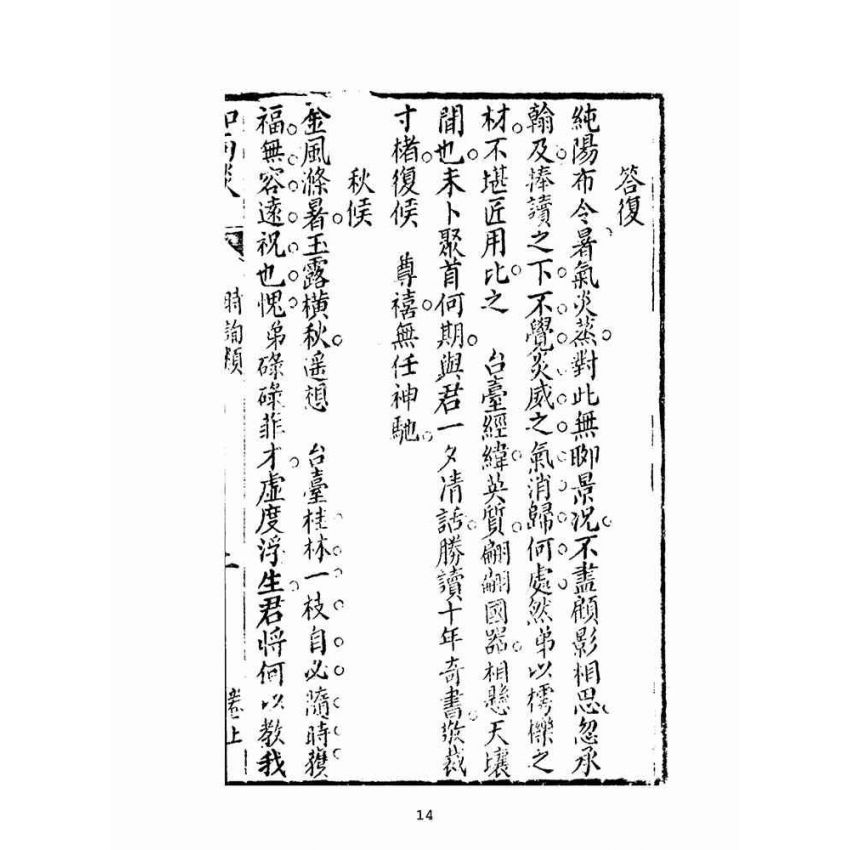 答復
純陽布令暑氣炎蒸對此無聊景況不盡顧影相思忽承
翰及捧讀之下不覺炎威之氣消歸何處然弟以樗櫟之
材不堪匠用比之 台臺經緯英質翩翩國器相懸天壤
間也未卜聚首何期與君一夕清話勝讀十年奇書敬裁
寸楮復候 尊禧無任神馳
秋候
金風滌暑玉露橫秋遥想 台臺桂林一枝自必隨時獲
福無容遠祝也愧弟碌碌菲才虛度浮生君將何以教我
時詢類
卷上
14